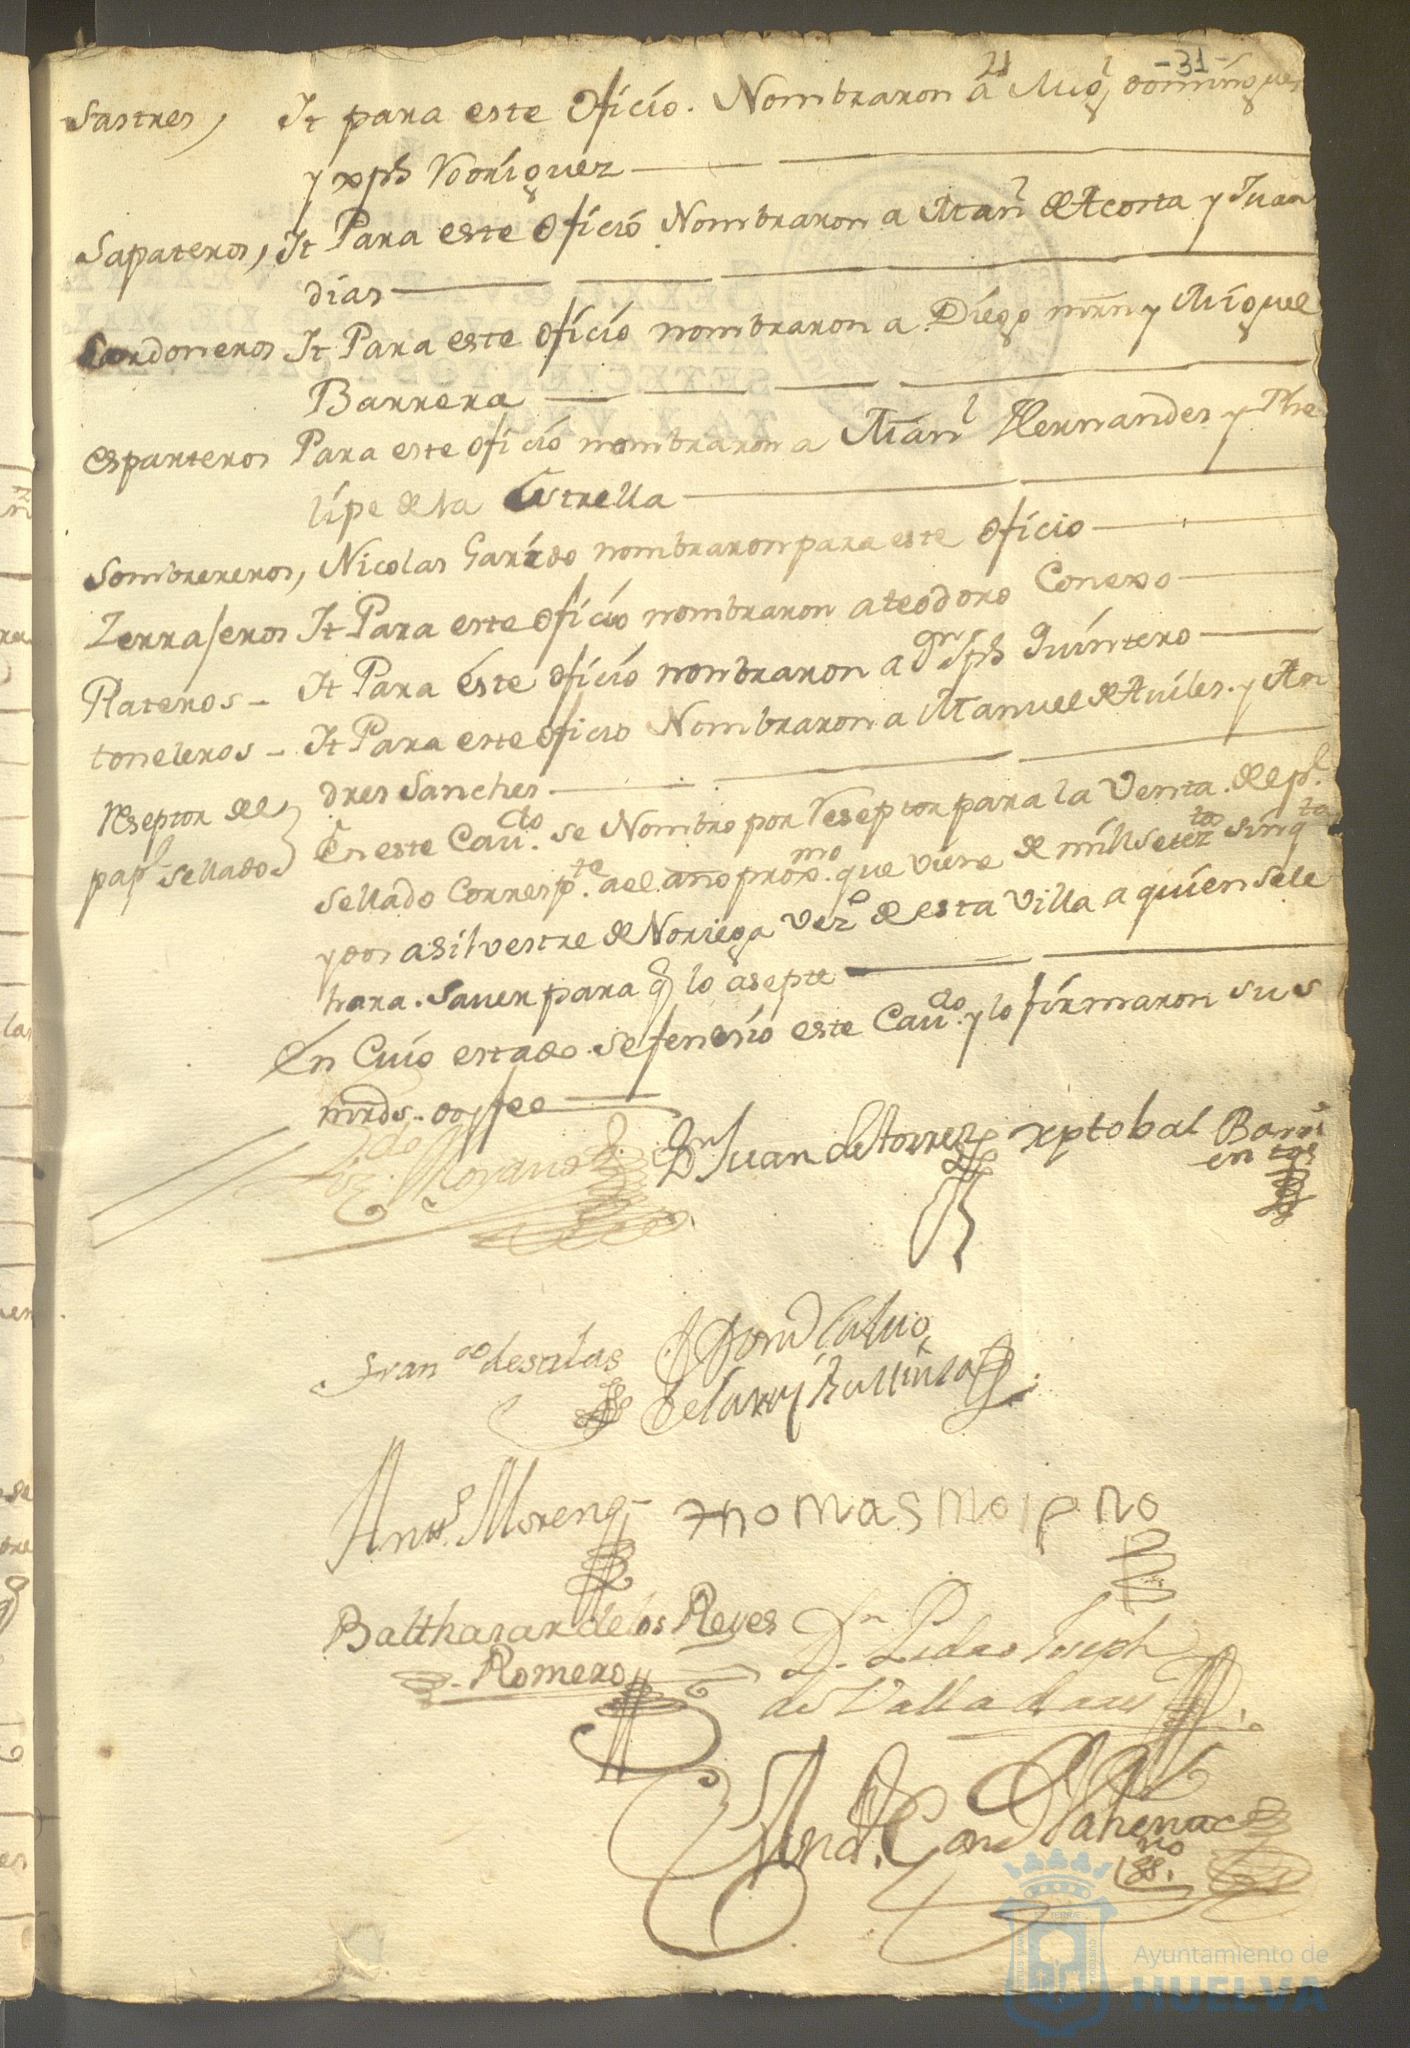 21 -31-
Sastres, It para este oficio. Nombraron a Migl dominguez
y xph Rodriguez
Sapateros, It Para este oficio Nombraron a Manl de Acosta y Juan
dias
Cordoneros It Para este oficio nombraron a Diego mrn y Miguel
Barrera
esparteros Para este oficio nombraron a Manl Hernandes y Phe
lipe de la Estrella
Sombrereros, Nicolas Garido nombraron para este oficio
Zerrajeros It Para este oficio nombraron a teodoro Conexo
Plateros - It Para este oficio nombraron a Dn Jph Quintero
toneleros - It Para este oficio Nombraron a Manuel de Aviles. y An
dres Sanches
Reseptor del papl sellado En este Cavdo. se Nombro por Reseptor para la Venta. del pl.
sellado Correspte. a el año proxmo. que viene de mill setezto sinqta
y dos a silvestre de Noriega vezo de esta villa a quien se le
hara. saver para q lo asepte
En Cuio estado. se fenesio este Cavdo. y lo firmaron sus
mrds. doy fee
Dn Juan de torres xptobal Barri
entos
Franco de salas
Anto. Moreno thomas moreno
Balthasar de los Reyes Dn. Pedro Joseph
Romero de Valladares
Ayuntamiento de
HUELVA